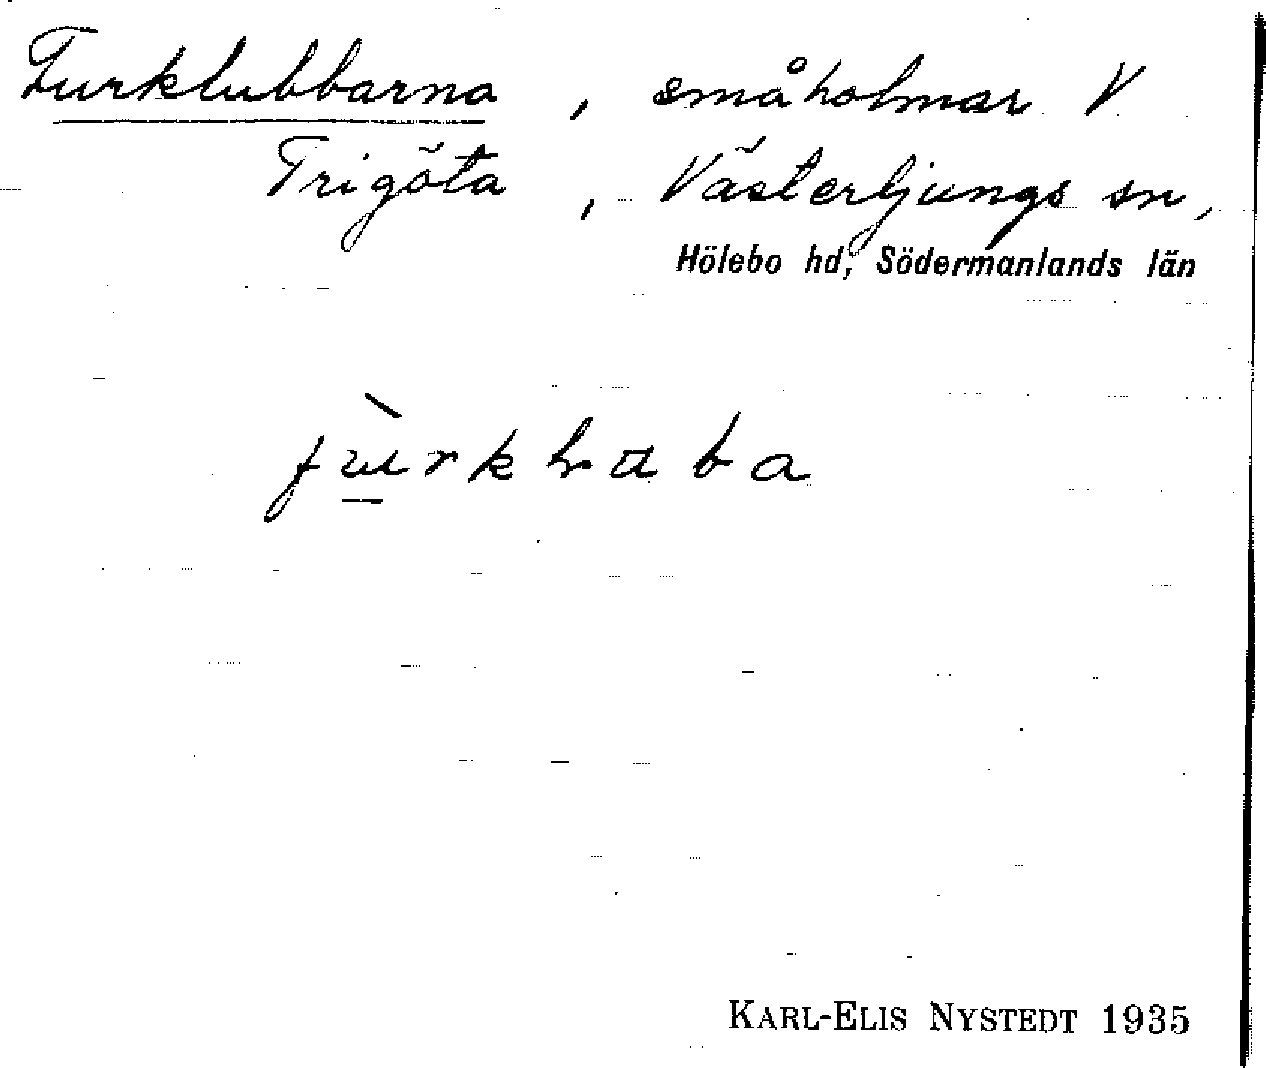 Furklubbarna, småholmar V
Trigöta, Västerljungs sn,
Hölebo hd, Södermanlands län
fùrkluba
KARL-ELIS NYSTEDT 1935